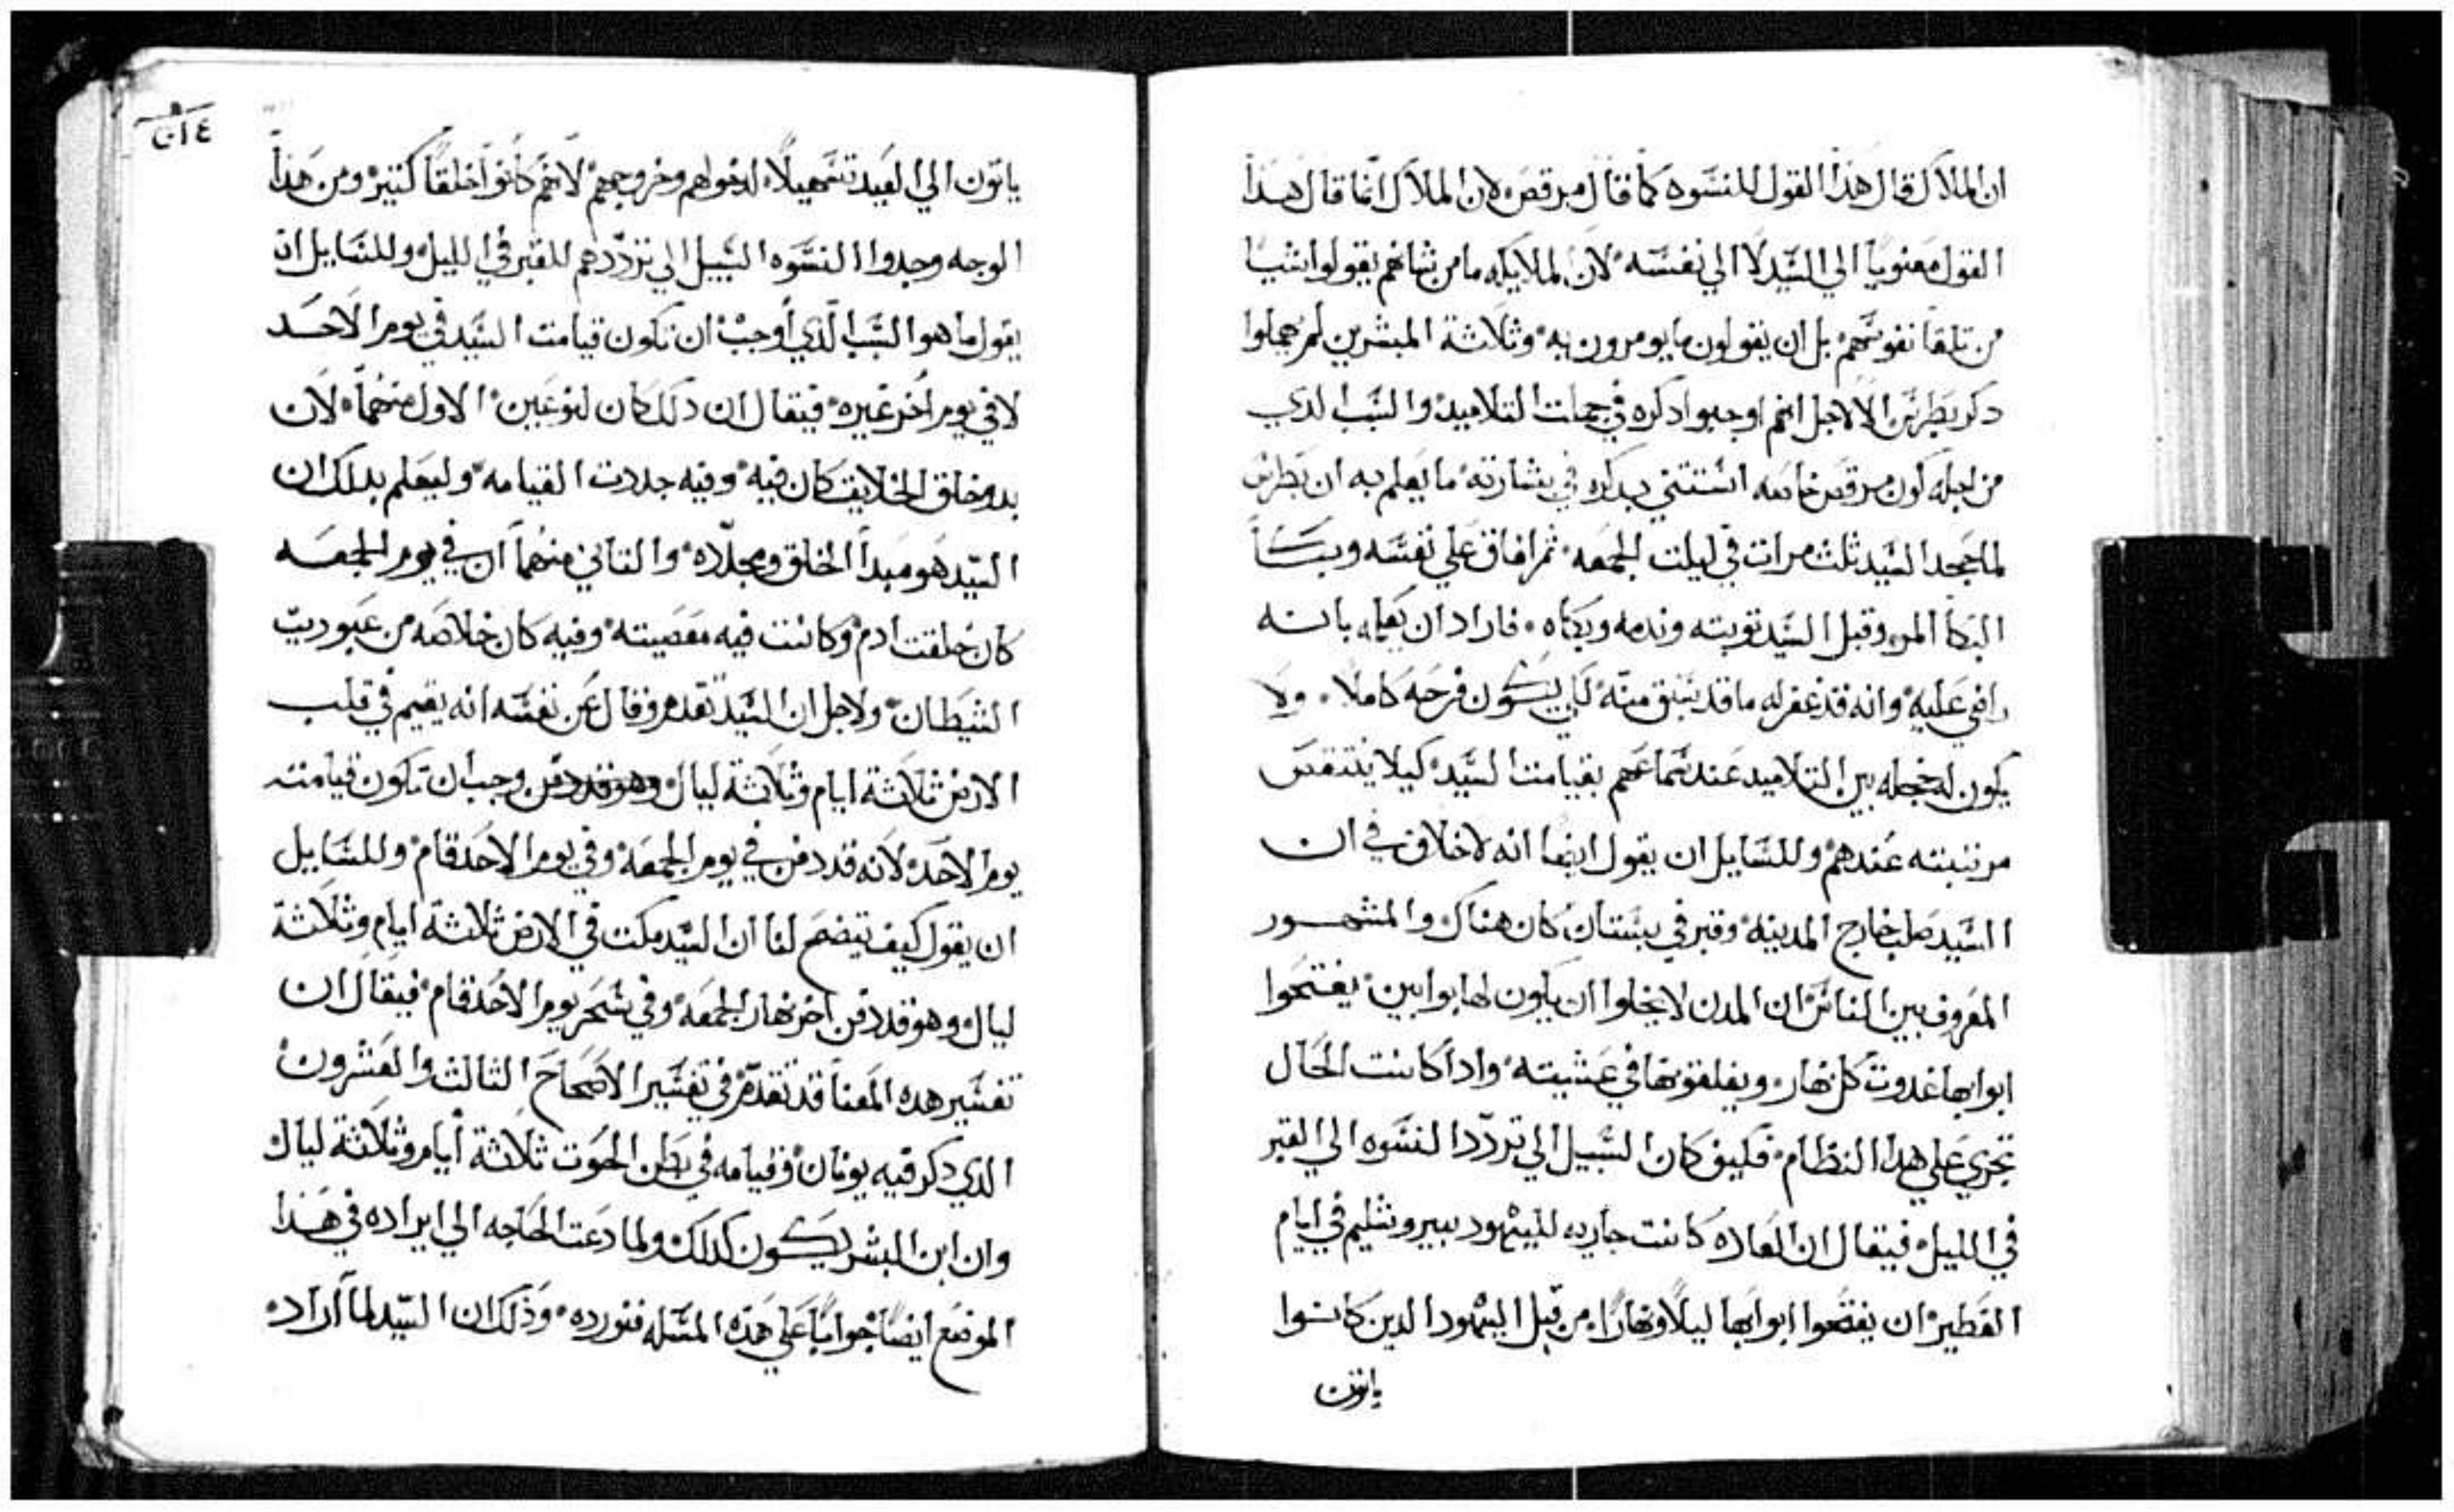 ان الملاك قال هذا القول للنسوه كما قال مرقص لان الملاك انما قال هذا
القول معنويا الي السيد لا الي نفسه لان الملايكه ما من شانهم يقولوا شيا
من تلقا نفوسهم بل ان يقولون ما يومرون به وثلاثة المبشرين لم يهملوا
دكر بطرس الا لاجل انهم اوجبوا دكره في جملت التلاميد والسبب الدي
من اجله كون مرقص خاصه استتني بدكره في بشارته ما يعلم به ان بطرس
لما جحد السيد ثلث مرات في ليلت الجمعه ثم افاق علي نفسه وبكا
البكا المر وقبل السيد توبته وندمه وبكاه فاراد ان يعلمه بانه
راضي عليه وانه قد غفر له ما قد سبق منه لكي يكون فرحه كاملا ولا
يكون له خجله بين التلاميد عند سماعهم بقيامت السيد كيلا ينتقص
مرتبته عندهم وللسايل ان يقول ايضا انه لا خلاف في ان
السيد صلب خارج المدينه وقبر في بستان كان هناك والمشهور
المعروف بين الناس ان المدن لا يخلوا ان يكون لها بوابين يفتحوا
ابوابها غدوت كل نهار ويغلقونها في عشيته وادا كانت الحال
تجري علي هدا النظام فكيف كان السبيل الي تردد النسوه الي القبر
في الليل فيقال ان العاده كانت جاريه لليهود بيروشليم في ايام
الفطير ان يفتحوا ابوابها ليلا ونهارا من قبل اليهود الدين كانوا
ياتون
٤١٥
ياتون الي العيد تسهيلا لدخولهم وخروجهم لانهم كانوا خلقا كتير ومن هذا
الوجه وجدوا النسوه السبيل الي ترددهم للقبر في الليل وللسايل ان
يقول ما هو السبب الدي اوجب ان تكون قيامت السيد في يوم الاحد
لا في يوم اخر غيره فيقال ان دلك كان لنوعين الاول منهما لان
بدو خلق الخلايق كان فيه وفيه جددت القيامه وليعلم بدلك ان
السيد هو مبدا الخلق ومجدده والتاني منهما ان في يوم الجمعه
كان خلقت ادم وكانت فيه معصيته وفيه كان خلاصه من عبوديت
الشيطان ولاجل ان السيد تقدم وقال عن نفسه انه يقيم في قلب
الارض ثلاثة ايام وثلاثة ليال وهو قد دفن وجب ان تكون قيامته
يوم الاحد لانه قد دفن في يوم الجمعه وفي يوم الاحد قام وللسايل
ان يقول كيف يتضح لنا ان السيد مكت في الارض ثلاثة ايام وثلاثة
ليال وهو قد دفن اخر نهار الجمعه وفي سحر يوم الاحد قام فيقال ان
تفسير هده المعنا قد تقدم في تفسير الاصحاح الثالث والعشرون
الدي دكر فيه يونان وقيامه في بطن الحوت ثلاثة ايام وثلاثة ليال
وان ابن البشر يكون كدلك ولما دعت الحاجه الي ايراده في هذا
الموضع ايضا جوابا علي هذه المسله فنورده وذلك ان السيد لما اراد